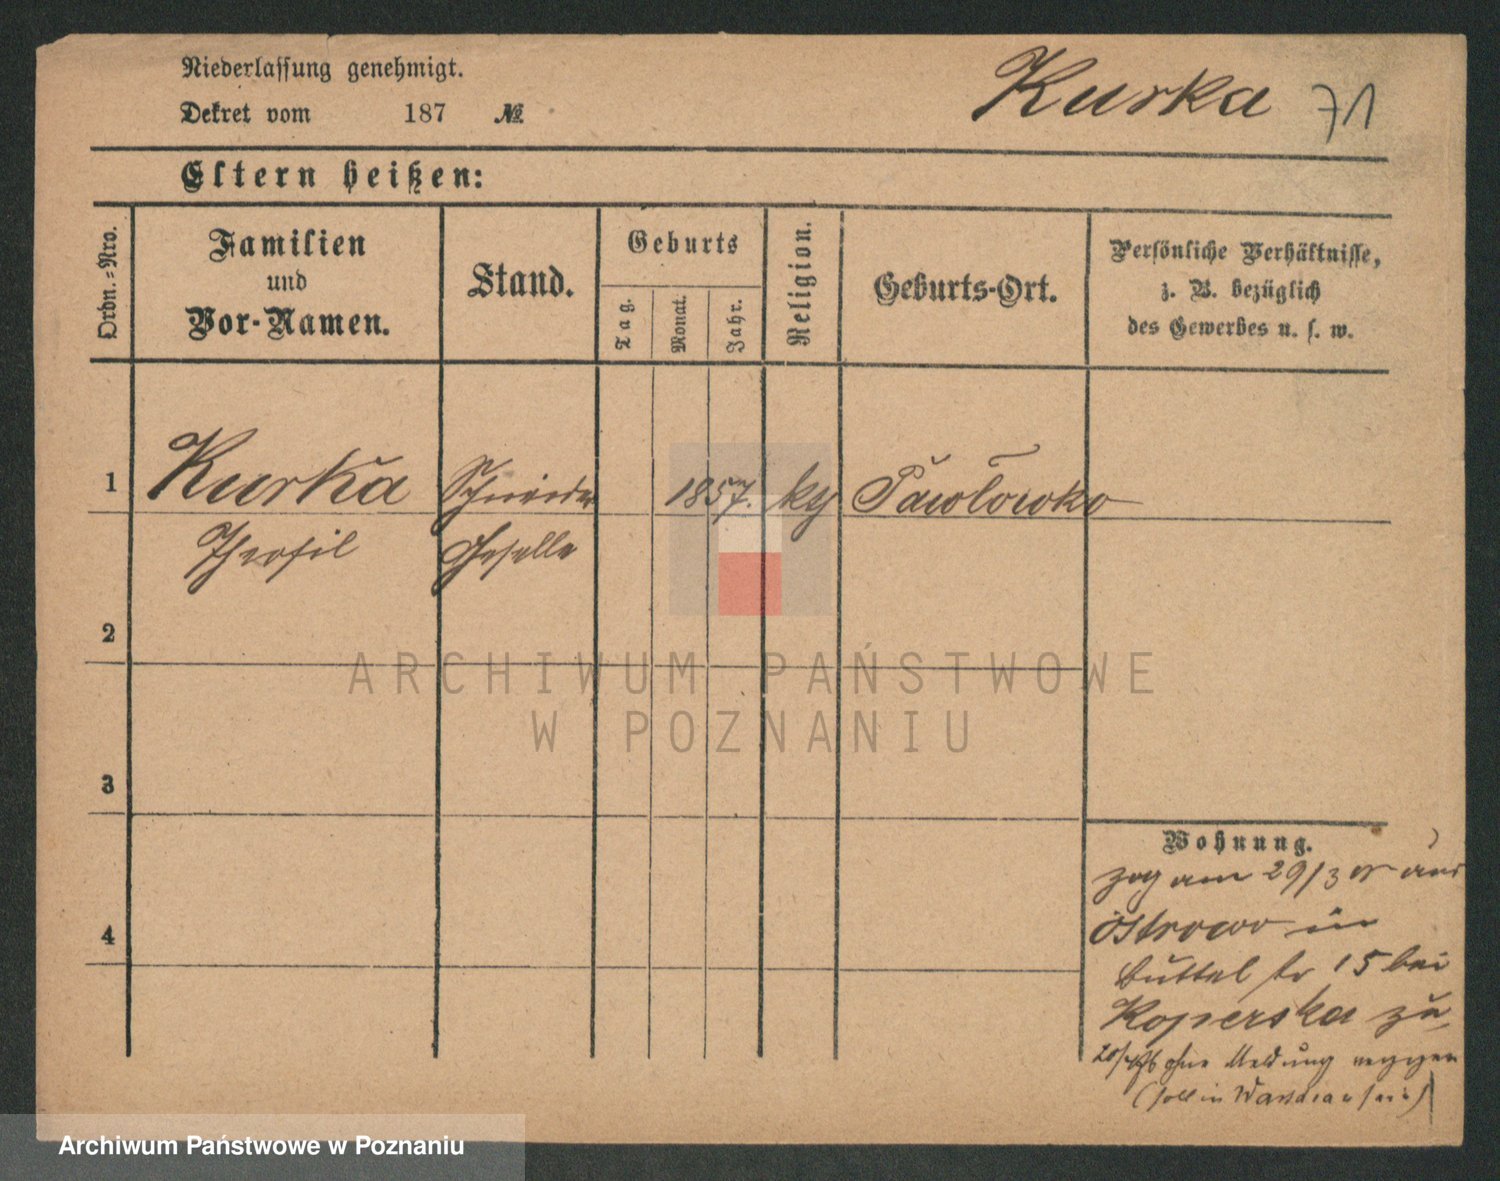 Niederlassung genehmigt.
Dekret vom 187 №
Kurka 71
Eltern heißen:
Ordn.=Nro.
Familien
und
Vor-Namen.
Stand.
Geburts
Tag.
Monat.
Jahr.
Religion.
Geburts-Ort.
Persönliche Verhältnisse,
z. B. bezüglich
des Gewerbes u. s. w.
1 Kurka Schneider 1857. ky Pawlowko
Theofil Geselle
2
3
4
Wohnung.
zog am 29/3 aus
Ostrowo in
Buttel str 15 bei
Koperska zu
ohne Meldung
(soll in Warschau sein)
ARCHIWUM PAŃSTWOWE
W POZNANIU
Archiwum Państwowe w Poznaniu